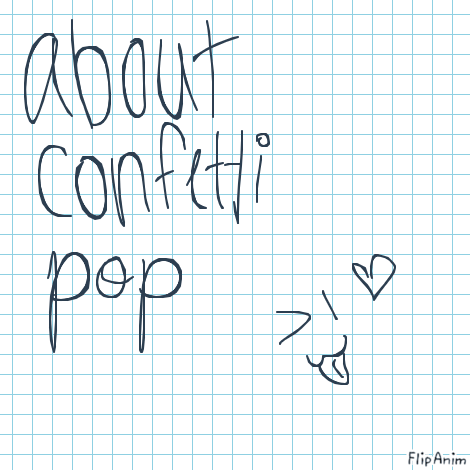 about
confetti
pop
FlipAnim